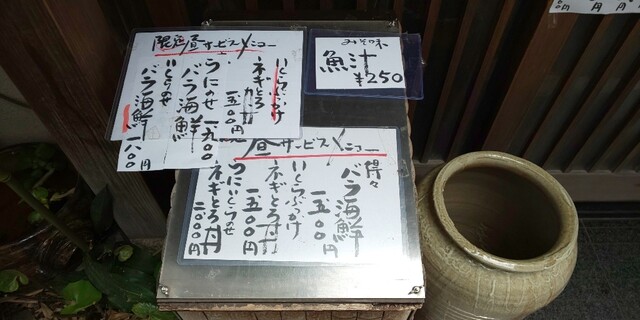 限定昼サービスメニュー
いくらぶっかけ
ネギとろ丼
一五〇〇円
うにのせ一九〇〇
バラ海鮮
いくらのせ
バラ海鮮一八〇〇円
みそ味
魚汁
¥250
昼サービスメニュー
得々
バラ海鮮
一五〇〇円
いくらぶっかけ
ネギとろ丼
一五〇〇円
うにいくらのせ
ネギとろ丼
二〇〇〇円